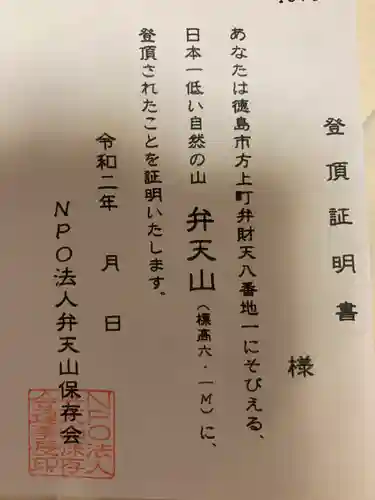 登頂証明書
様
あなたは徳島市方上町弁財天八番地一にそびえる、
日本一低い自然の山 弁天山（標高六・一M）に、
登頂されたことを証明いたします。
令和二年 月 日
NPO法人弁天山保存会
NPO法人